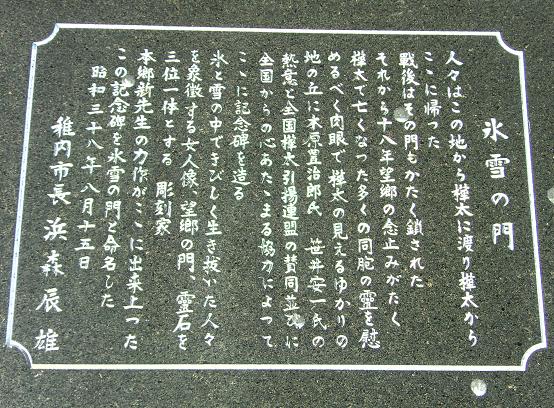 氷雪の門
人々はこの地から樺太に渡り樺太から
ここに帰った
戦後はその門もかたく鎖された
それから十八年望郷の念止みがたく
樺太で亡くなった多くの同胞の霊を慰
めるべく肉眼で樺太の見えるゆかりの
地の丘に木原豊治郎氏 笹井安一氏の
熱意と全国樺太引揚連盟の賛同並びに
全国からの心あたゝまる協力によって
こゝに記念碑を造る
氷と雪の中できびしく生き抜いた人々
を象徴する女人像、望郷の門、霊石を
三位一体とする 彫刻家
本郷新先生の力作がこゝに出来上った
この記念碑を氷雪の門と命名した
昭和三十八年八月十五日
稚内市長 浜森辰雄